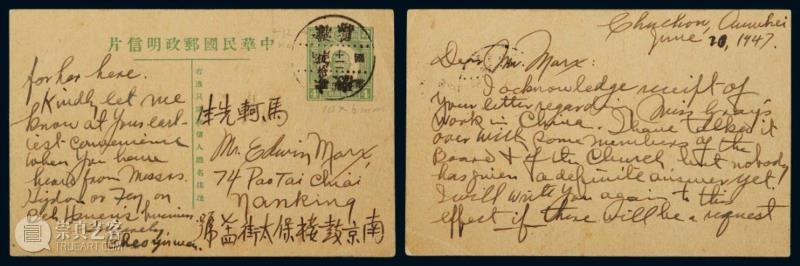 中華民國郵政明信片
for her here.
Kindly let me
know at your earl-
iest convenience
when you have
heard from Messrs.
or
business.
馬軻先生
Mr. Edwin Marx,
74 Pao Tai Chiai
Nanking
南京鼓樓保太街號
Chuchow, Anwhei
June 20, 1947.
Dear Mr. Marx:
I acknowledge receipt of
your letter regarding Miss Gray's
work in China. I have talked it
over with some members of the
Board & of the Church, but nobody
has given a definite answer yet.
I will write you again to this
effect if there will be a request
崇真艺客
TRUEART.COM